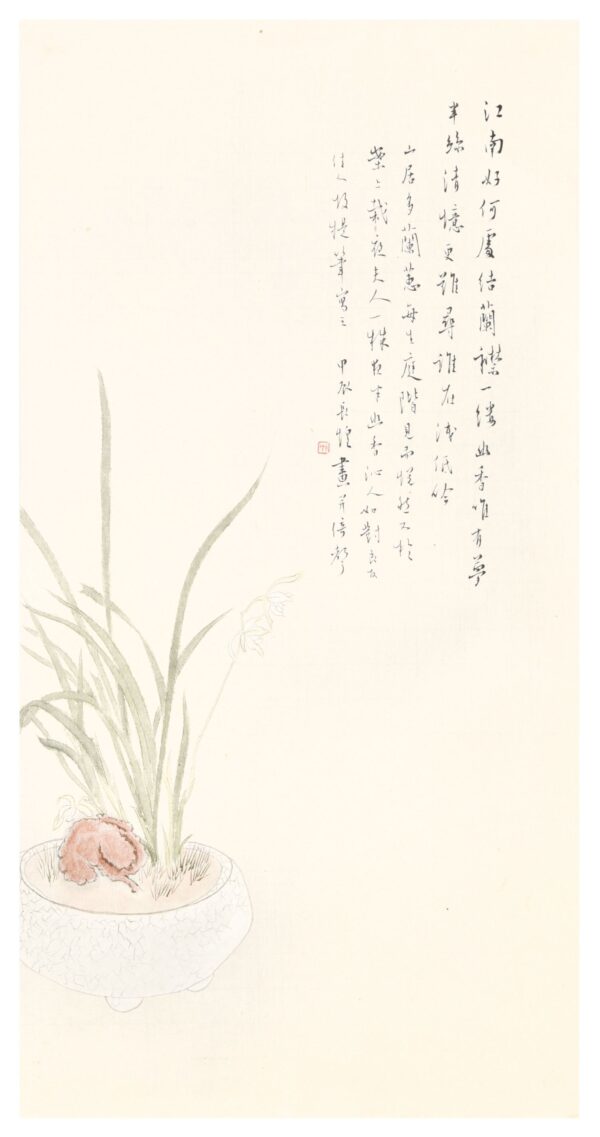 江南好何處結蘭襟一縷幽香唯有夢
半絲清憶更難尋誰在淺低吟
山居多蘭蕙每生庭階見而悅然又於
案上栽夜夫人一株夜半幽香沁人如對良友
佳人故提筆寫之 甲辰長 畫并倚聲